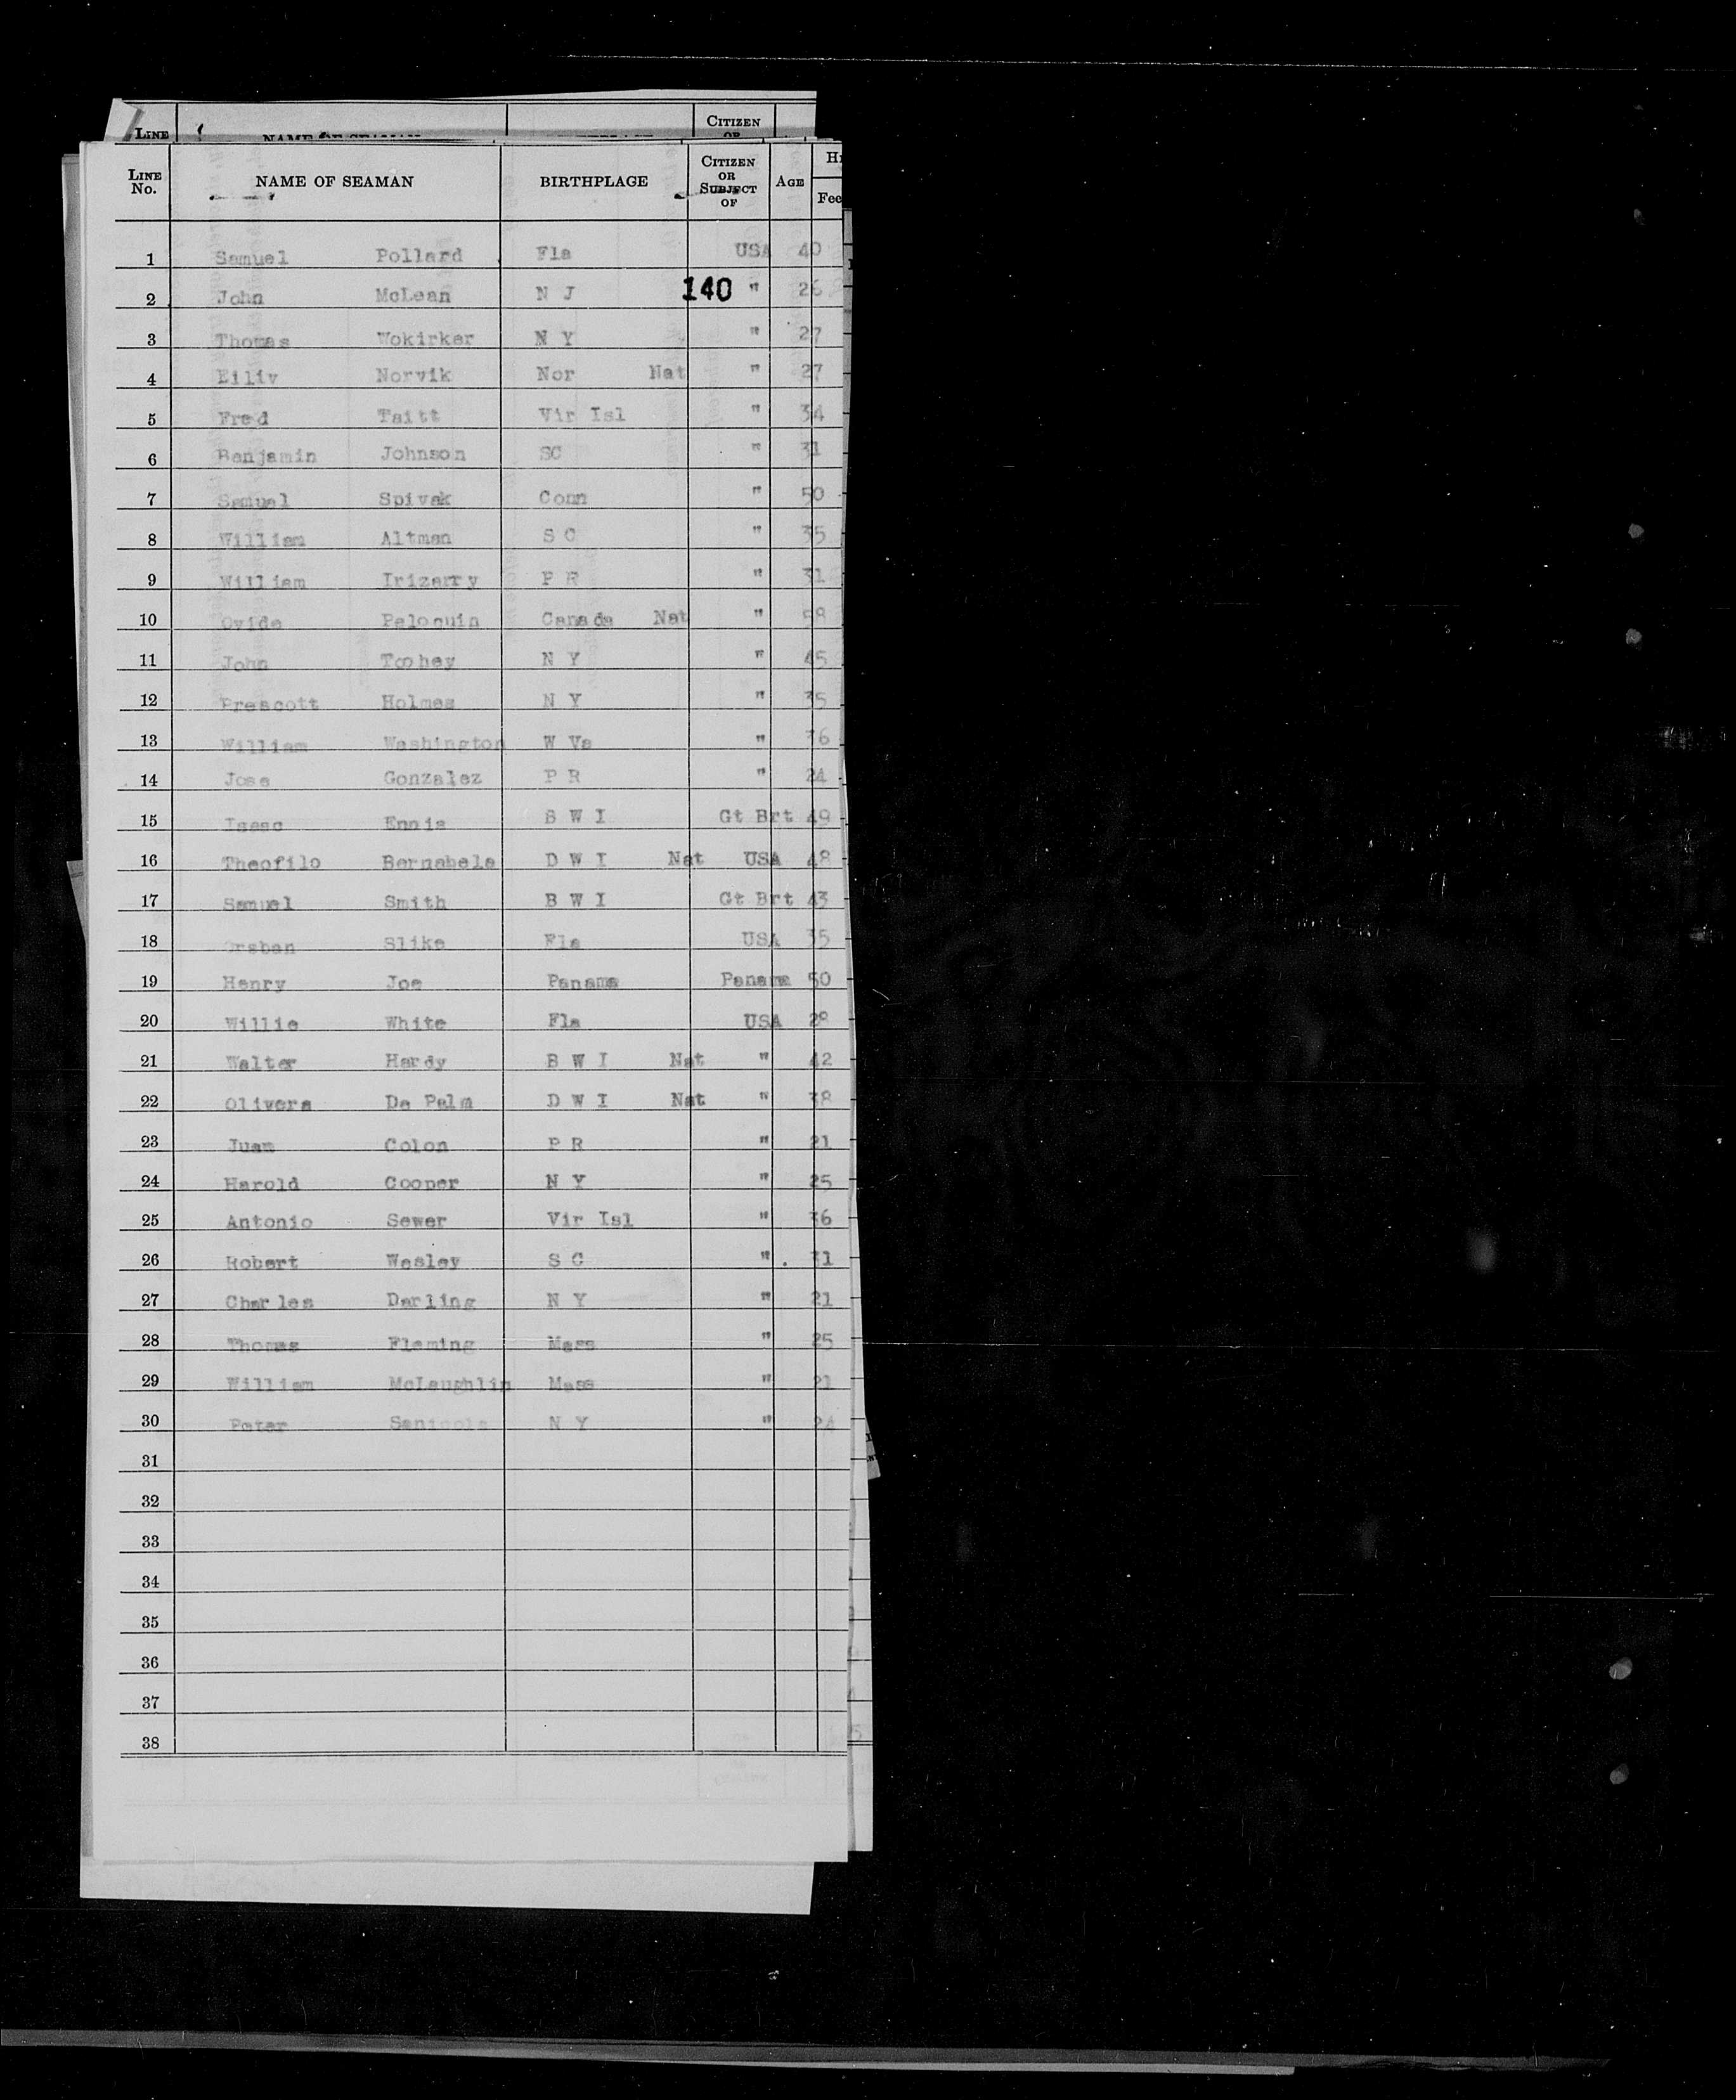 LINE NAME OF SEAMAN CITIZEN OR
LINE No. NAME OF SEAMAN BIRTHPLAGE CITIZEN OR SUBJECT OF AGE Fee
1 Samuel Pollard Fla USA 40
2 John McLean N J 140 " 26
3 Thomas Wokirker N Y " 27
4 Eiliv Norvik Nor Nat " 27
5 Fred Taitt Vir Isl " 34
6 Benjamin Johnson SC " 31
7 Samuel Spivak Conn " 50
8 William Altman S C " 35
9 William Irizarry P R " 31
10 Ovide Peloquin Canada Nat " 58
11 John Toohey N Y " 45
12 Prescott Holmes N Y " 35
13 William Washington W Va " 36
14 Jose Gonzalez P R " 24
15 Isaac Ennis B W I Gt Brt 49
16 Theofilo Bernabela D W I Nat USA 48
17 Samuel Smith B W I Gt Brt 43
18 Slike Fla USA 35
19 Henry Joe Panama Panama 50
20 Willie White Fla USA 28
21 Walter Hardy B W I Nat " 42
22 Olivera De Palm D W I Nat " 38
23 Juan Colon P R " 21
24 Harold Cooper N Y " 25
25 Antonio Sewer Vir Isl " 36
26 Robert Wesley S C " 31
27 Charles Darling N Y " 21
28 Thomas Fleming Mass " 25
29 William McLaughlin Mass " 21
30 Peter Sanicola N Y " 24
31
32
33
34
35
36
37
38